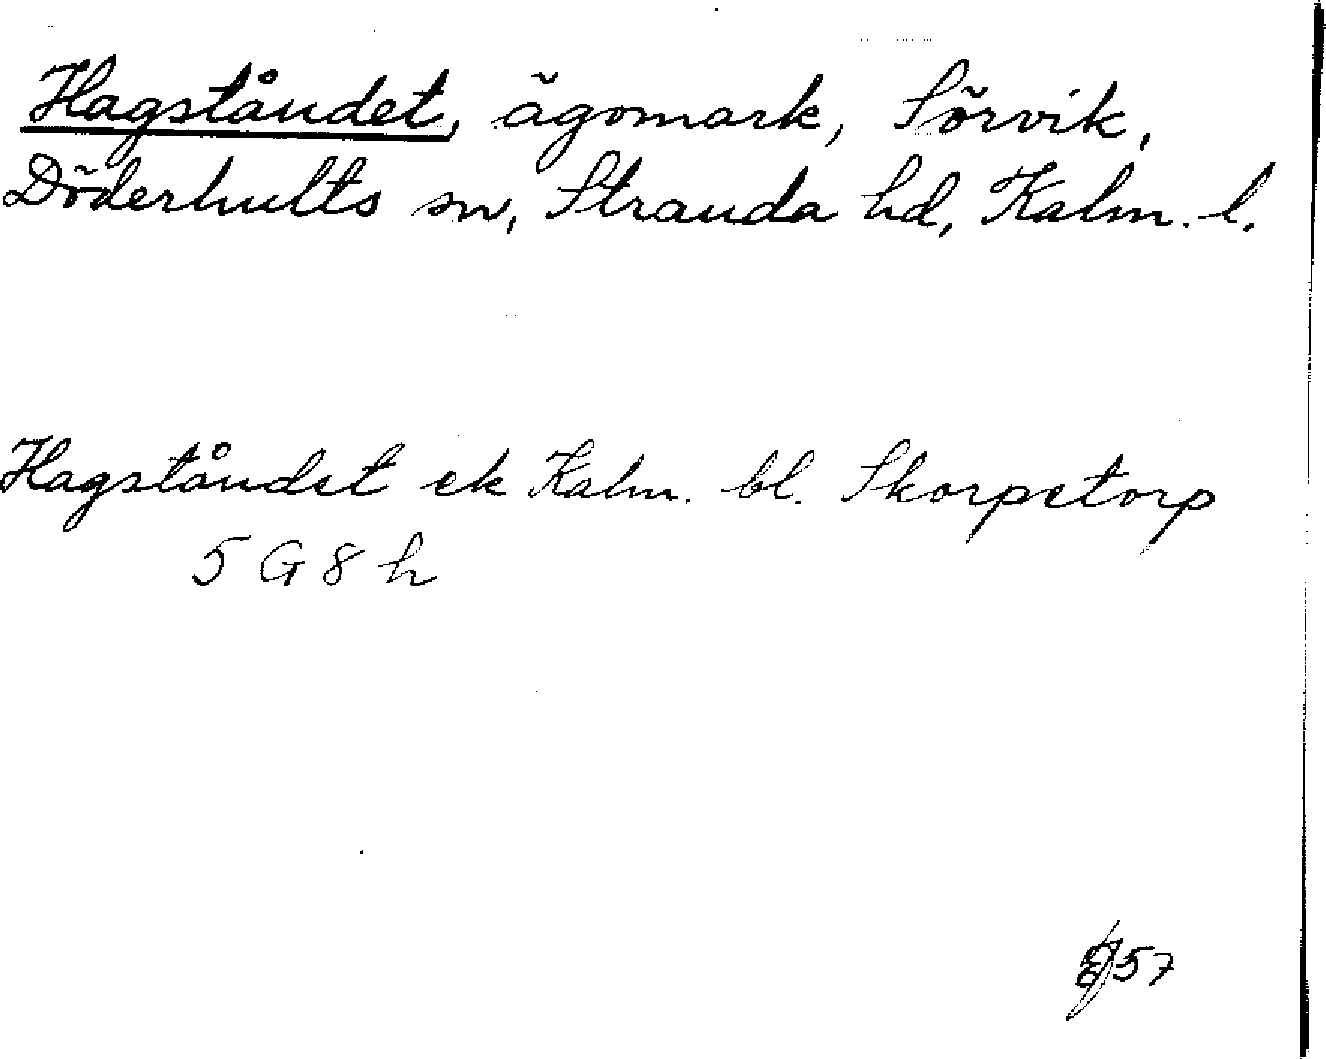 Hagståndet, ägomark, Sörvik,
Döderhults sn, Stranda hd, Kalm. l.
Hagståndet ek Kalm. bl. Skorpetorp
5 G 8 h
57